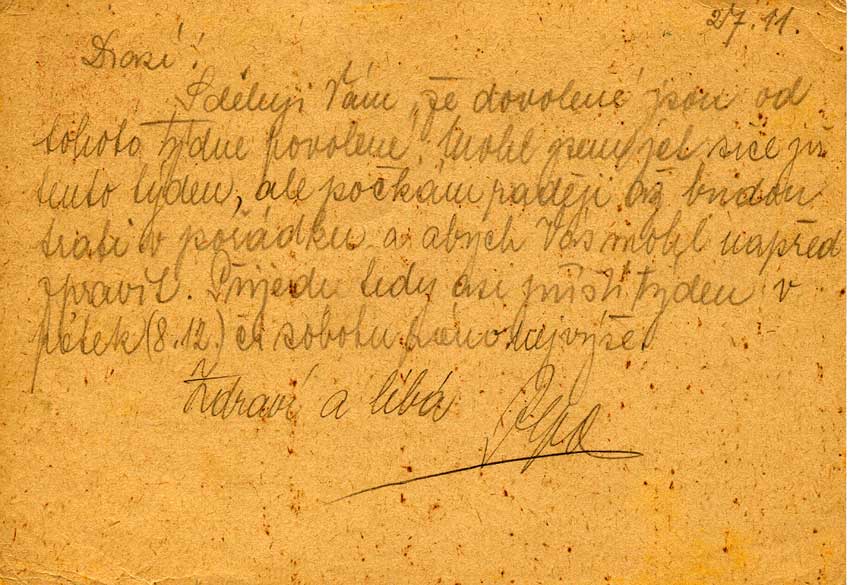 27. 11.
Drazí!
Sděluji Vám, že dovolené jsou od
tohoto týdne povolené. Mohl jsem jet sice již
tento týden, ale počkám raději až budou
trati v pořádku a abych Vás mohl napřed
zpravit. Přijedu tedy asi příští týden v
pátek (8.12.) či sobotu ráno nejvýše.
Zdraví a líbá